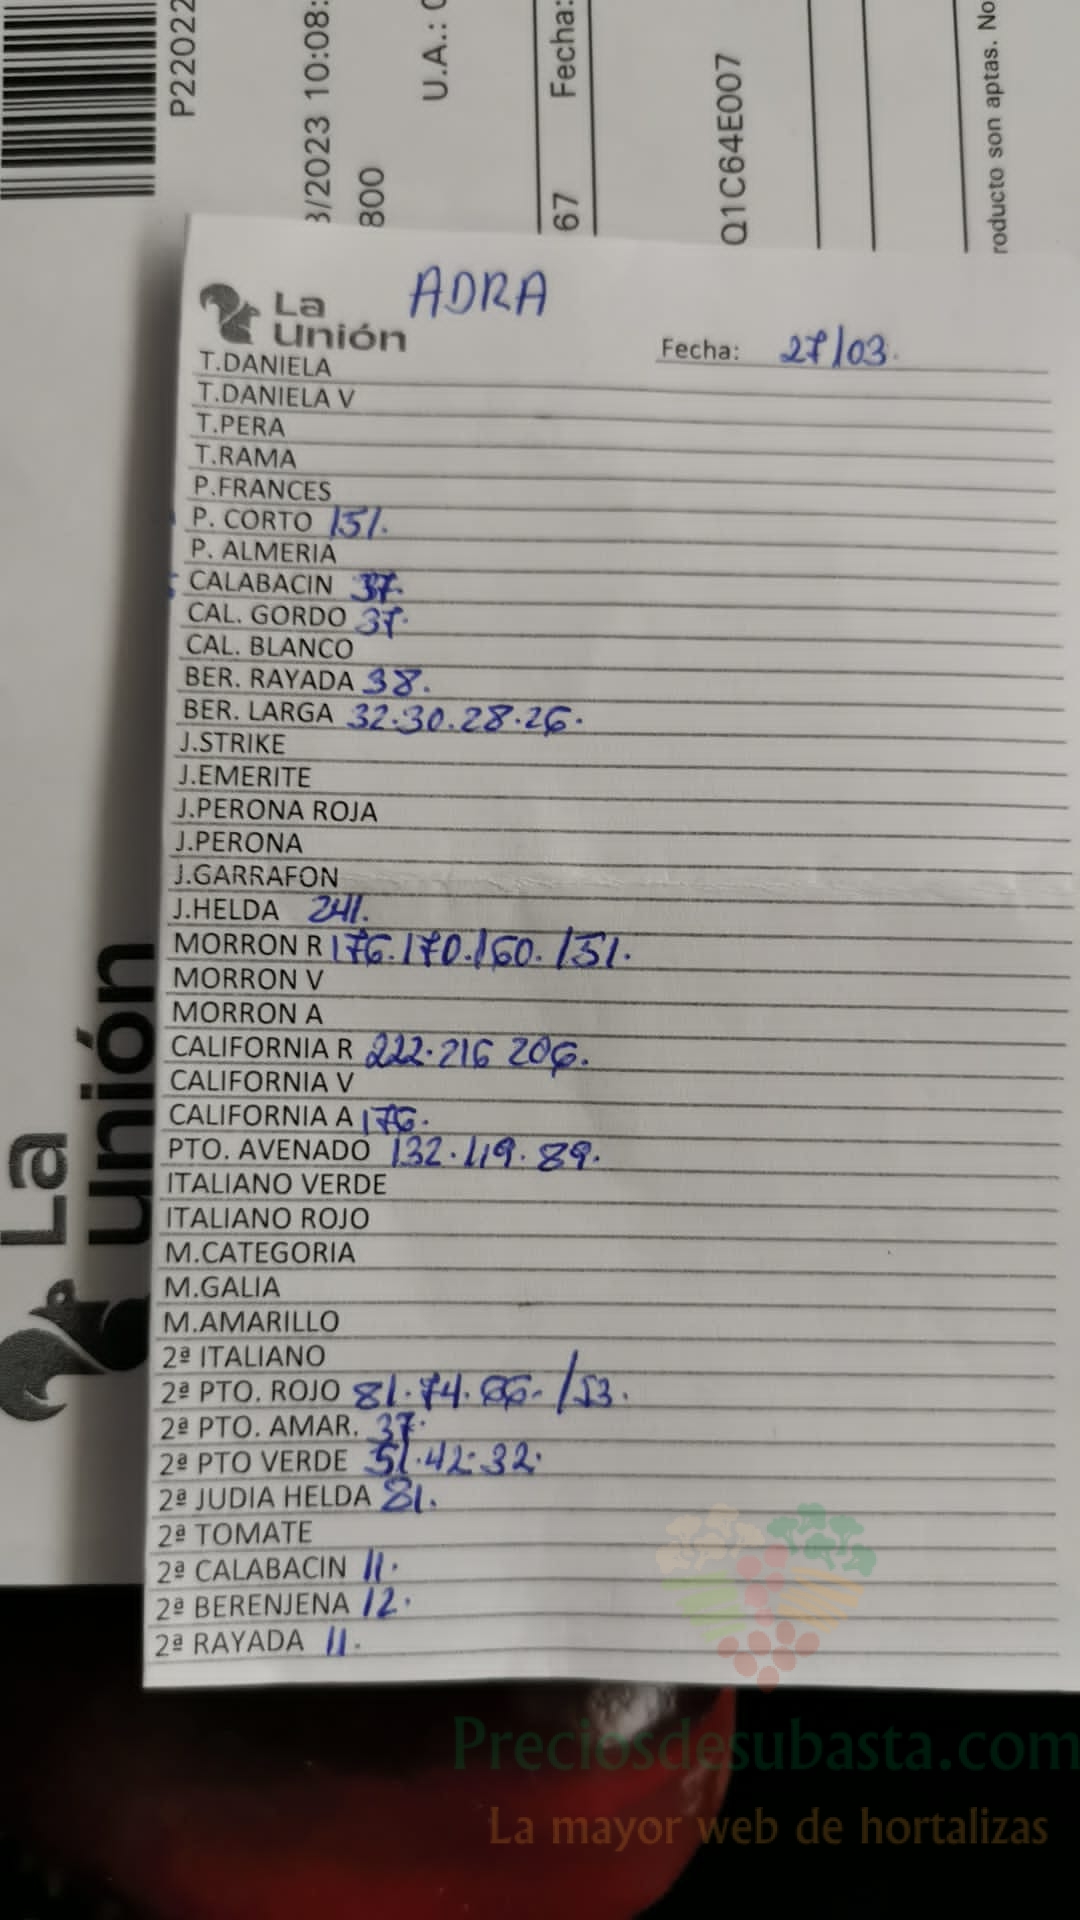 P22022
3/2023 10:08:
800
U.A.: 0
67 Fecha:
Q1C64E007
roducto son aptas. No
La
unión
La
Unión
ADRA
Fecha: 27/03.
T.DANIELA
T.DANIELA V
T.PERA
T.RAMA
P.FRANCES
P. CORTO 151.
P. ALMERIA
CALABACIN 37.
CAL. GORDO 37.
CAL. BLANCO
BER. RAYADA 38.
BER. LARGA 32.30.28.26.
J.STRIKE
J.EMERITE
J.PERONA ROJA
J.PERONA
J.GARRAFON
J.HELDA 241.
MORRON R 176.170.160. 151.
MORRON V
MORRON A
CALIFORNIA R 222.216 206.
CALIFORNIA V
CALIFORNIA A 176.
PTO. AVENADO 132.119.89.
ITALIANO VERDE
ITALIANO ROJO
M.CATEGORIA
M.GALIA
M.AMARILLO
2ª ITALIANO
2ª PTO. ROJO 81.74.66. /53.
2ª PTO. AMAR. 37.
2ª PTO VERDE 51.42.32.
2ª JUDIA HELDA 81.
2ª TOMATE
2ª CALABACIN 11.
2ª BERENJENA 12.
2ª RAYADA 11.
Preciosdesubasta.com
La mayor web de hortalizas